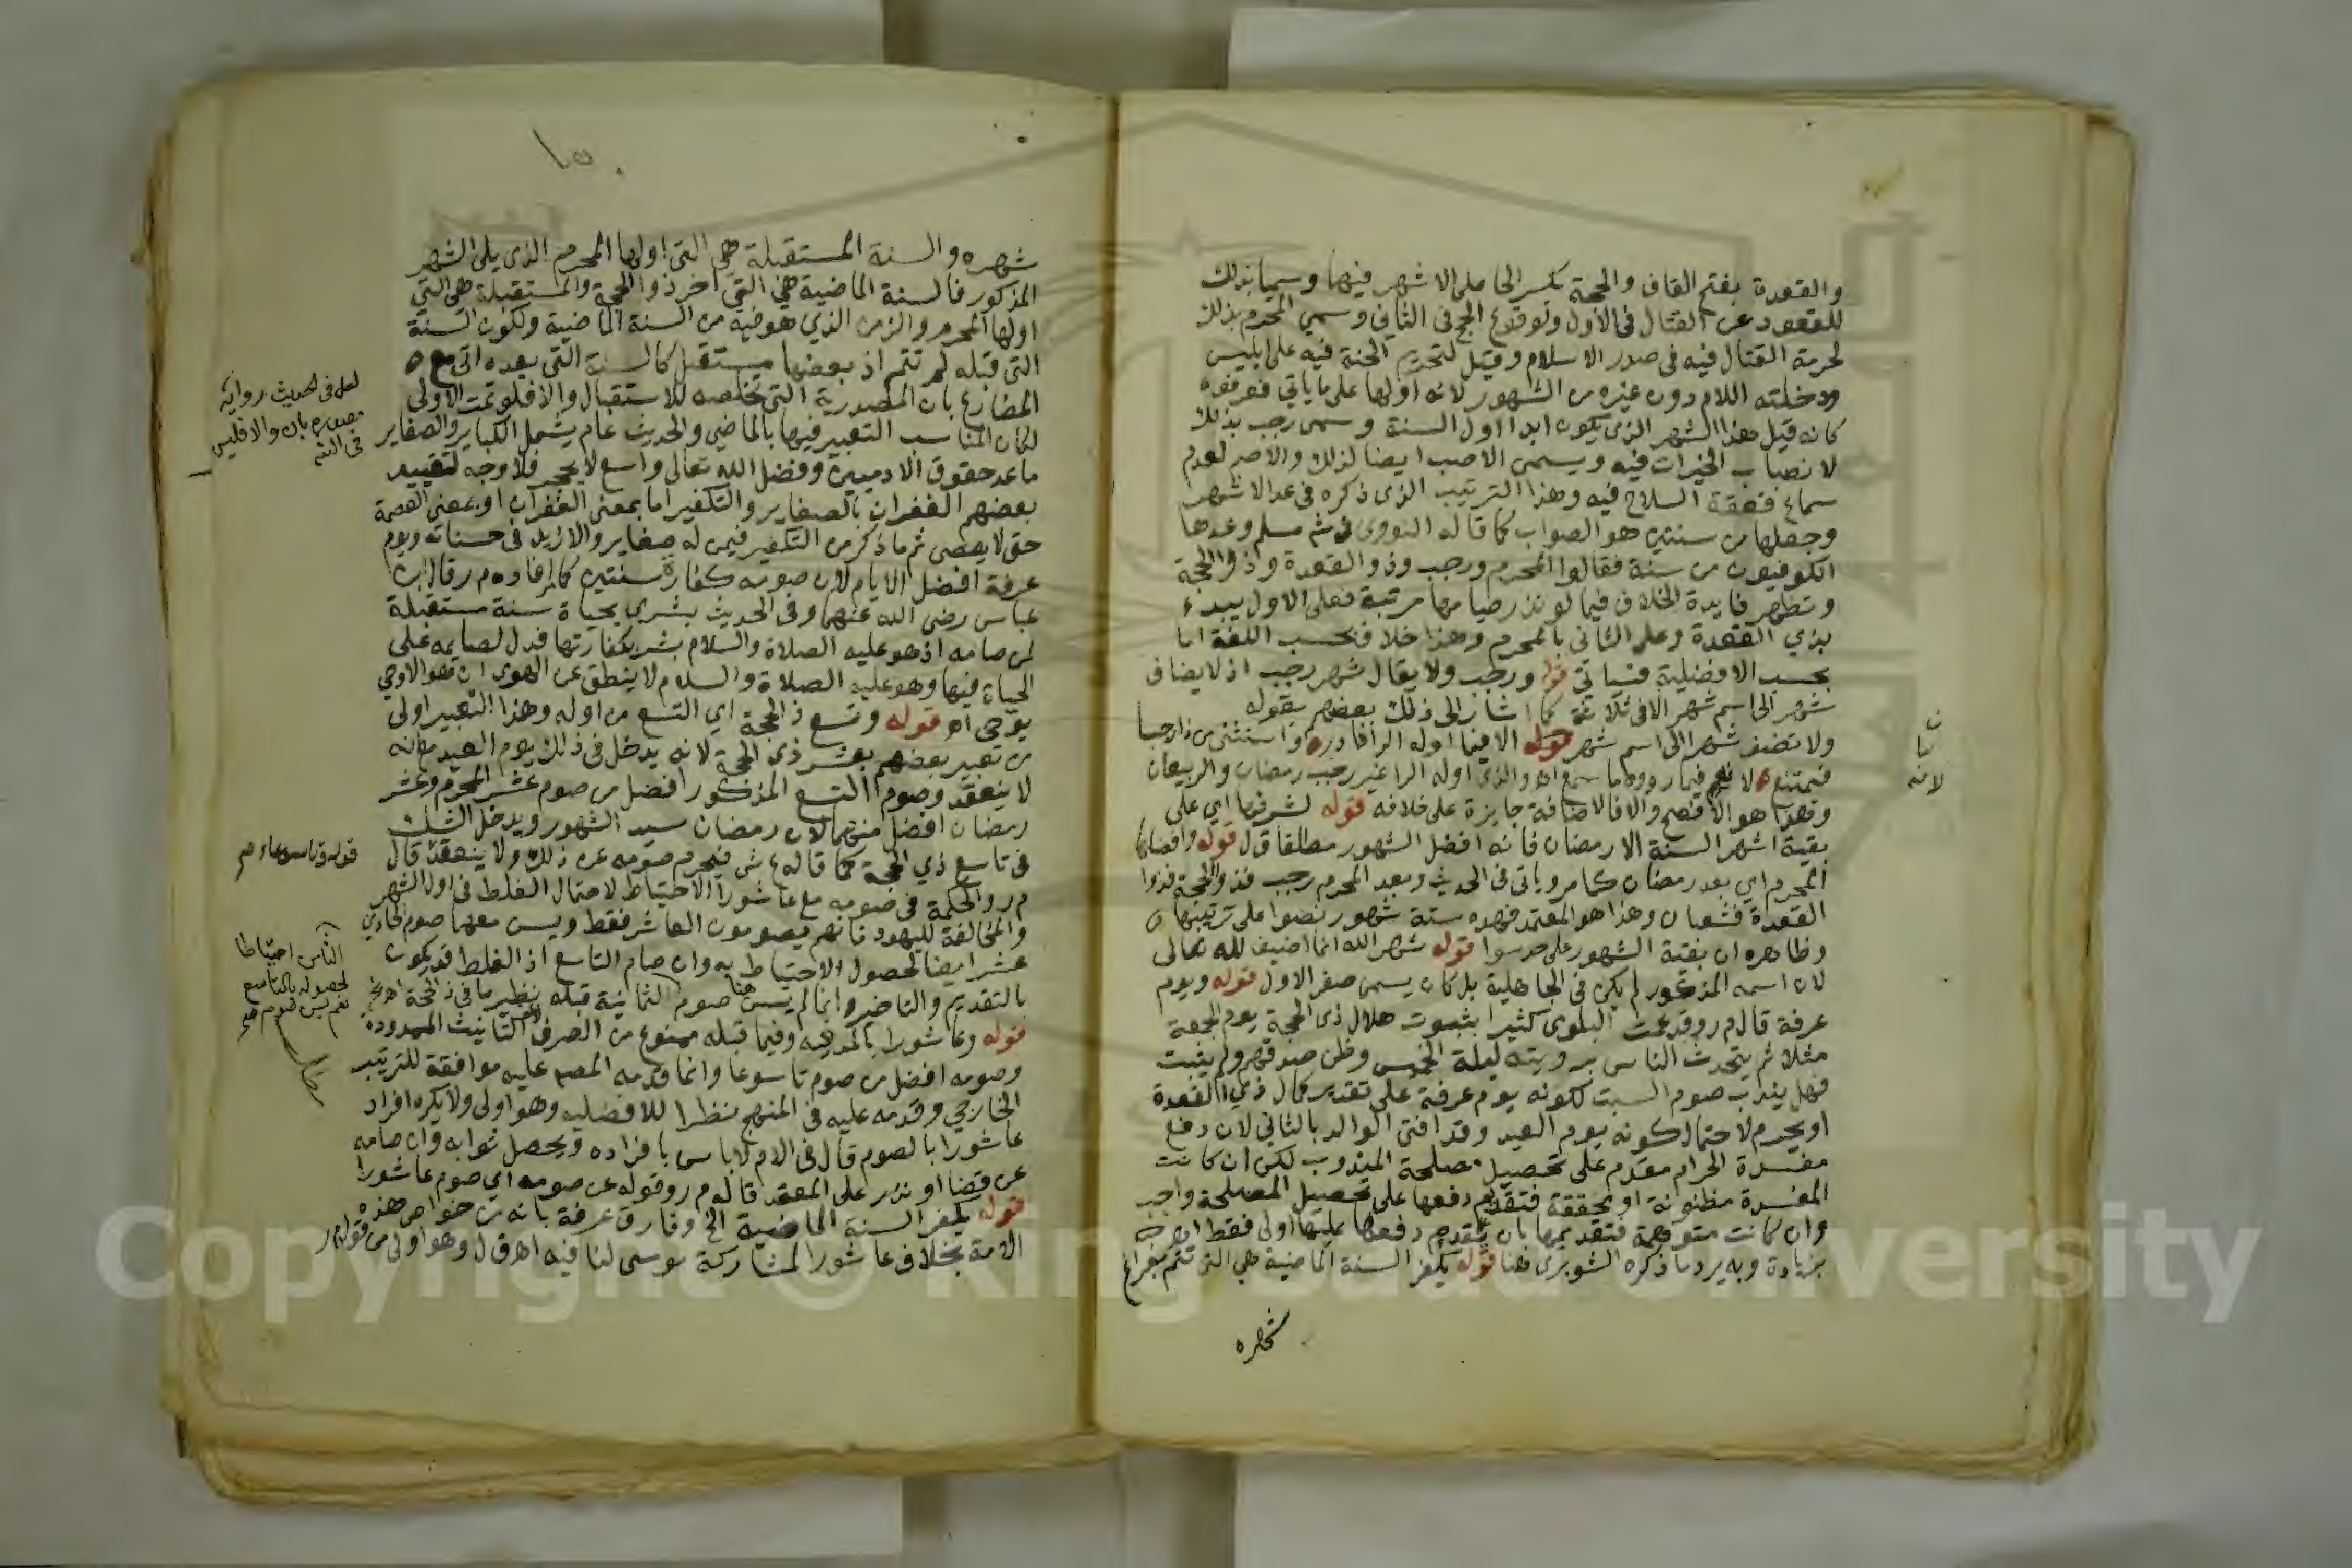 والقعدة بفتح القاف والحجة بكسر الحا على الاشهر فيهما وسميا بذلك
للقعود عن القتال في الاول ولوقوع الحج في الثاني وسمي المحرم بذلك
لحرمة القتال فيه في صدر الاسلام وقيل لتحريم الجنة فيه على ابليس
ودخلته اللام دون غيره من الشهور لانه اولها على ما ياتي فعرفوه
كانه قيل هذا الشهر الذي يكون ابدا اول السنة وسمى رجب بذلك
لانصباب الخيرات فيه ويسمى الاصب ايضا لذلك والاصم لعدم
سماع قعقعة السلاح فيه وهذا الترتيب الذي ذكره في عد الاشهر
وجعلها من سنتين هو الصواب كما قاله النووي في شم مسلم وعدها
الكوفيون من سنة فقالوا المحرم ورجب وذو القعدة وذو الحجة
وتظهر فايدة الخلاف فيما لو نذر صيامها مرتبة فعلى الاول يبدء
بذي القعدة وعلى الثاني بالمحرم وهذا خلاف بحسب اللغة اما
بحسب الافضلية فسياتي قوله ورجب ولا يقال شهر رجب اذ لا يضاف
شهر الى اسم شهر الا في ثلاثة كما اشار الى ذلك بعضهم بقوله
ولا تضف شهرا الى اسم شهر الا فيما اوله الرا فادره واستثنى من ذا رجبا
فيمتنع لانه فيما رووه ما سمع اه والذي اوله الرا غير رجب رمضان والربيعان
وهذا هو الافصح والا فالاضافة جايزة على خلافه قوله لشرفها اي على
بقية اشهر السنة الا رمضان فانه افضل الشهور مطلقا ق ل قوله وافضلها
المحرم اي بعد رمضان كما مر وياتي في الحديث وبعد المحرم رجب فذو الحجة فذوا
القعدة فشعبان وهذا هو المعتمد فهذه ستة شهور نصوا على ترتيبها
وظاهره ان بقية الشهور على حد سوا قوله شهر الله انما اضيف لله تعالى
لان اسمه المذكور لم يكن في الجاهلية بل كان يسمى صفر الاول قوله ويوم
عرفة قال م ر وقد عمت البلوى كثيرا بثبوت هلال ذي الحجة يوم الجمعة
مثلا ثم يتحدث الناس برويته ليلة الخميس وظن صدقهم ولم يثبت
فهل يندب صوم السبت لكونه يوم عرفة على تقدير كمال ذي القعدة
او يحرم لاحتمال كونه يوم العيد وقد افتى الوالد بالثاني لان دفع
مفسدة الحرام مقدم على تحصيل مصلحة المندوب لكن ان كانت
المفسدة مظنونة او محققة فتقديم دفعها على تحصيل المصلحة واجب
وان كانت متوهمة فتقديمها بان يقدم دفعها عليها اولى فقط اه
بزيادة وبه يرد ما ذكره الشوبري هنا قوله يكفر السنة الماضية هي التي تتم بفراغ
شهره
شهره والسنة المستقبلة هي التي اولها المحرم الذي يلي الشهر
المذكور فالسنة الماضية هي التي اخر ذو الحجة والمستقبلة هي التي
اولها المحرم والزمن الذي هو فيه من السنة الماضية ولكون السنة
التي قبله لم تتم اذ بعضها مستقبل كالسنة التي بعده اتى مع
المضارع بان المصدرية التي تخلصه للاستقبال والا فلو تمت الاولى
لكان المناسب التعبير فيها بالماضي والحديث عام يشمل الكباير والصغاير
ما عد حقوق الادميين وفضل الله تعالى واسع لا يحجر فلا وجه لتقييد
بعضهم الغفران بالصغاير والتكفير اما بمعنى الغفران او بمعنى العصمة
حتى لا يعصى ثم ما ذكر من التكفير فيمن له صغاير والا زيد في حسناته ويوم
عرفة افضل الايام لان صومه كفارة سنتين كما م ر وقال ابن
عباس رضى الله عنهما وفي الحديث بشرى بحياة سنة مستقبلة
لمن صامه اذ هو عليه الصلاة والسلام بشر بكفارتها فدل لصايمه على
الحياة فيها وهو عليه الصلاة والسلام لا ينطق عن الهوى ان هو الا وحي
يوحى اه قوله وتسع ذ الحجة اي التسع من اوله وهذا التعبير اولى
من تعبير بعضهم بعشر ذي الحجة لانه يدخل في ذلك يوم العيد مع انه
لا ينعقد وصوم التسع المذكور افضل من صوم عشر المحرم وعشر
رمضان افضل منهما لان رمضان سيد الشهور ويدخل الشك
في تاسع ذي الحجة كما قاله ع ش فيحرم صومه عن ذلك ولا ينعقد قال
م ر والحكمة في صومه مع عاشورا الاحتياط لاحتمال الغلط في اول الشهر
والمخالفة لليهود فانهم يصومون العاشر فقط ويسن معهما صوم الحادي
عشر ايضا لحصول الاحتياط به وان صام التاسع اذ الغلط قد يكون
بالتقديم والتاخير وانما لم يسن هنا صوم الثمانية قبله نظير ما في ذ الحجة
قوله وعاشورا بالمد فيه وفيما قبله ممنوع من الصرف لالف التانيث الممدودة
وصومه افضل من صوم تاسوعا وانما قدمه المصم عليه موافقة للترتيب
الخارجي وقدمه عليه في المنهج نظرا للافضليه وهو اولى ولا يكره افراد
عاشورا بالصوم قال في الام لا باس بافراده ويحصل ثوابه وان صامه
عن قضا او نذر على المعتمد قاله م ر وقوله عن صومه اي صوم عاشورا
قوله يكفر السنة الماضية الخ وفارق عرفة بانه من خواص هذه
الامة بخلاف عاشورا لمشاركة موسى لنا فيه اه ق ل وهو اولى من قولهم
لعل في الحديث رواية
مصدره بان والا فليس
في التتم
قوله وتاسوعاء هو
الناس احتياطا
لحصوله بالتاسع
نعم يسن صوم
ن
نا
لانه